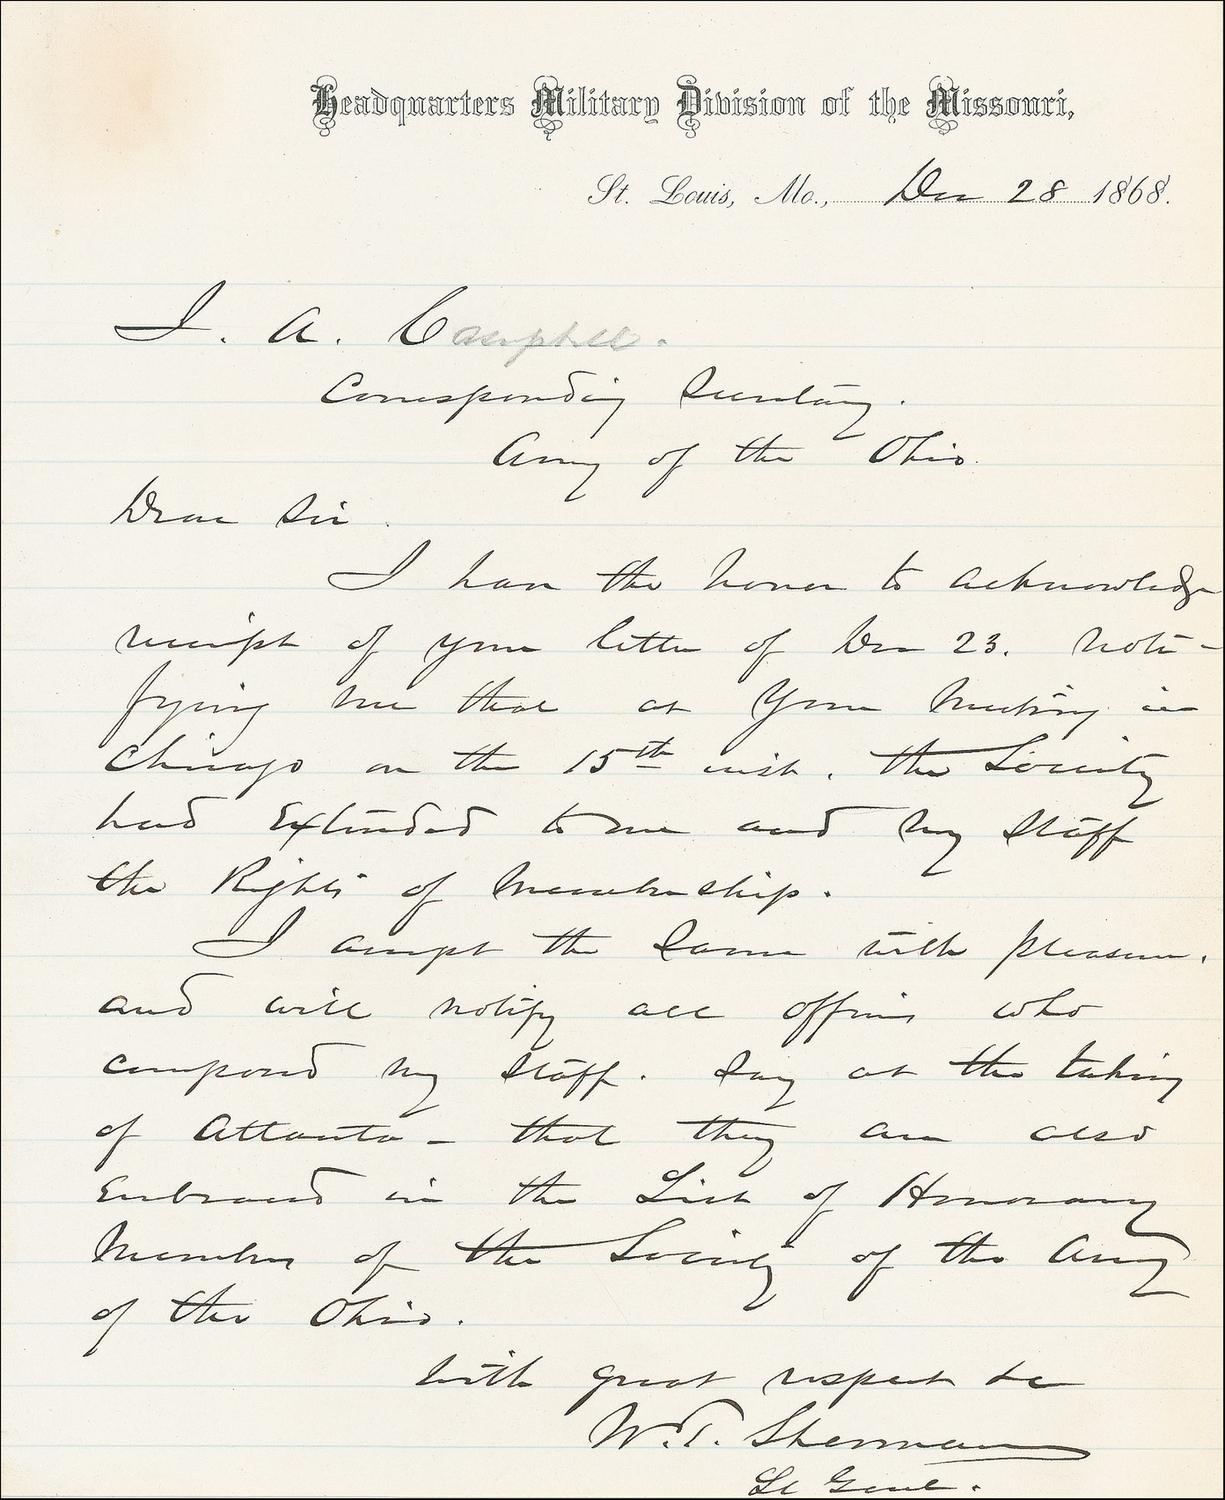 Headquarters Military Division of the Missouri,
St. Louis, Mo., Dec 28 1868.
J. A. Campbell.
Corresponding Secretary.
Army of the Ohio.
Dear Sir.
I have the honor to acknowledge
receipt of your letter of Dec 23. noti-
fying me that at Your Meeting in
Chicago on the 15th inst. the Society
had Extended to me and my Staff
the Rights of Membership.
I accept the Same with pleasure.
and will notify all officers who
composed my Staff. Say at the taking
of Atlanta - that they are also
Embraced in the List of Honorary
Members of the Society of the Army
of the Ohio.
With great respect &c
W. T. Sherman
Lt Genl.